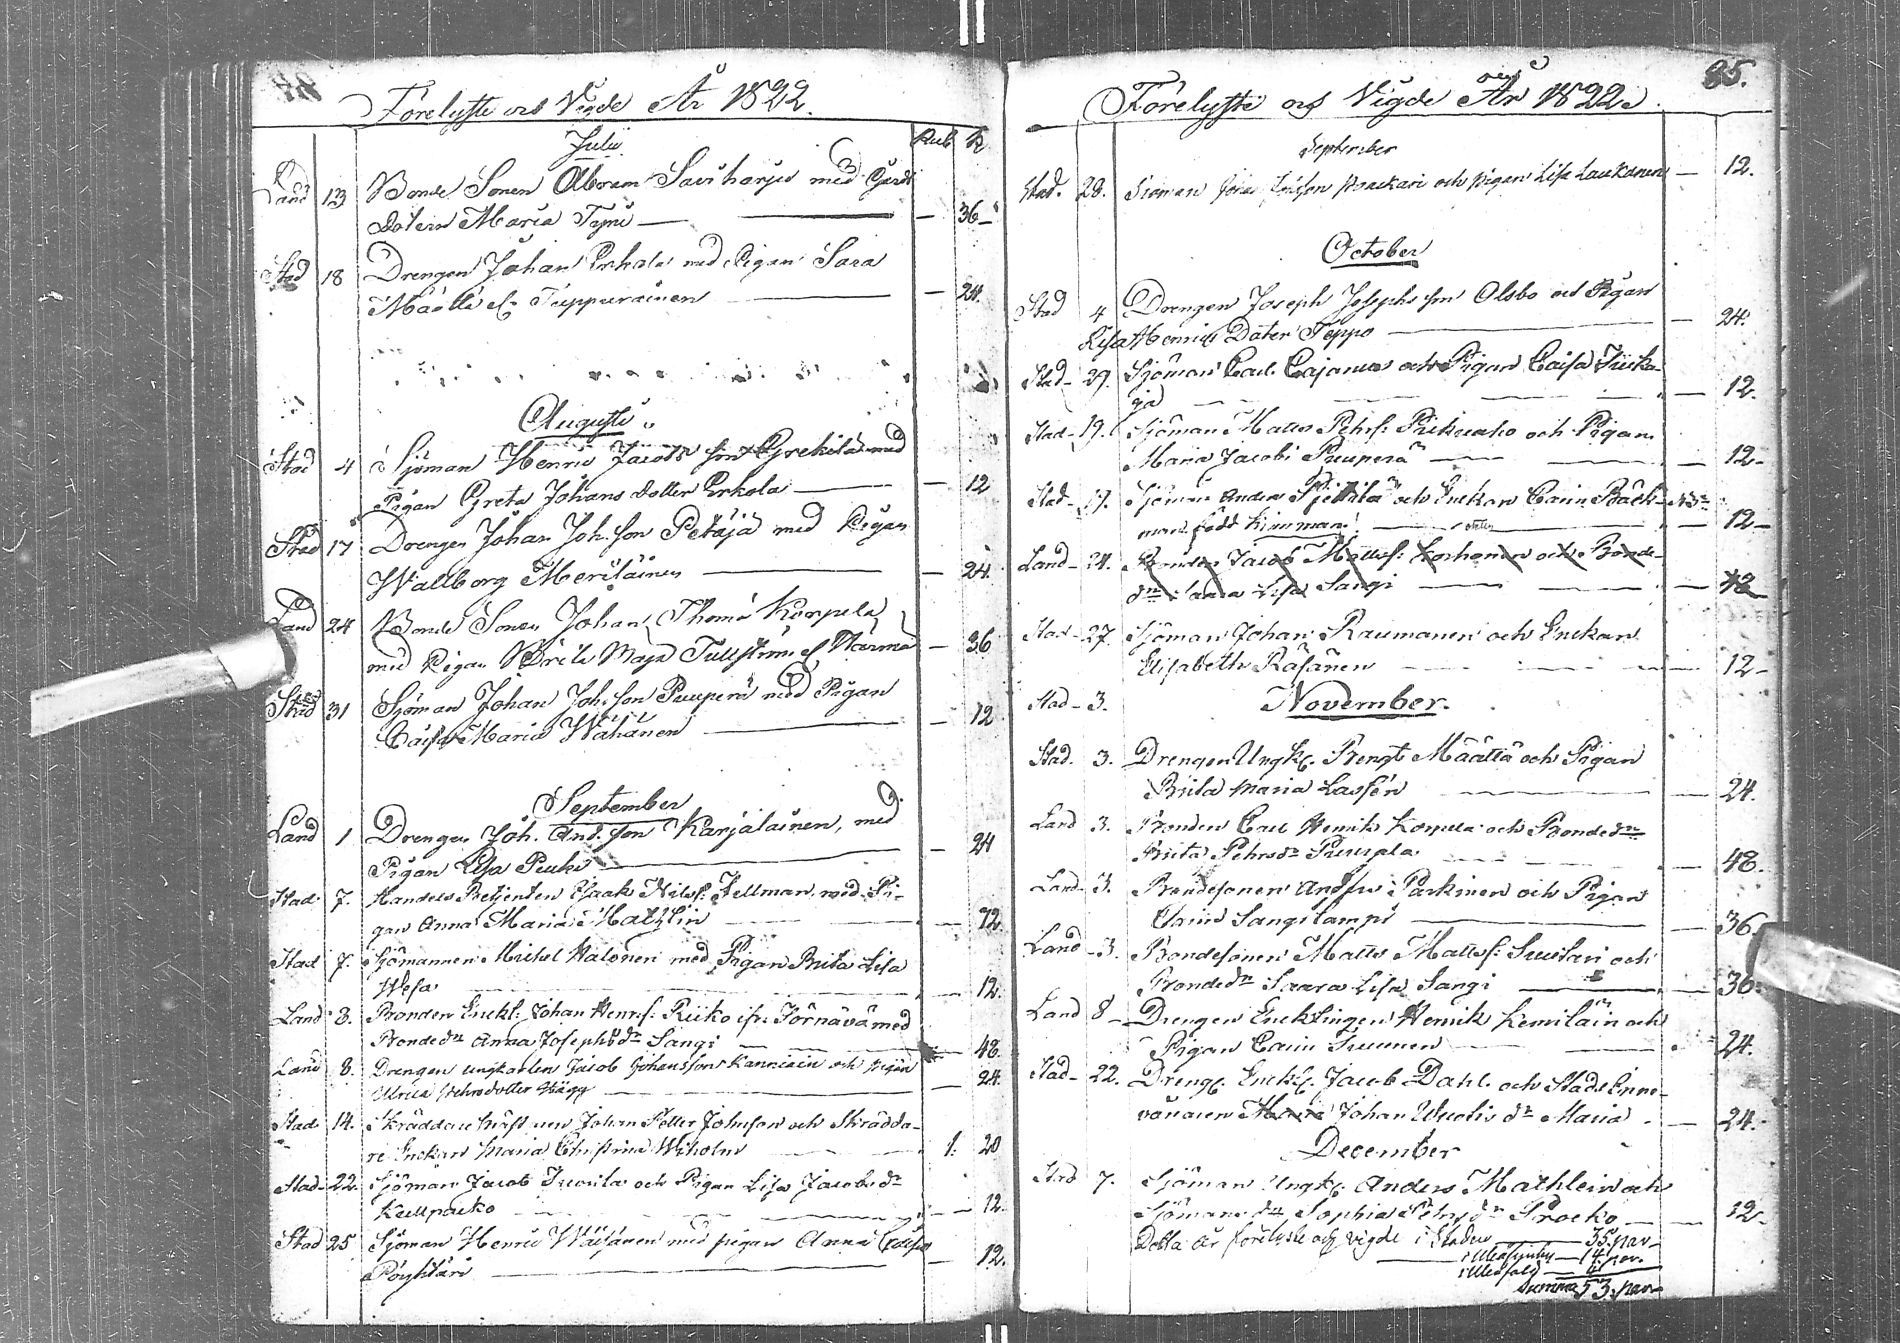 Förelyste och Vigde År 1822.
Julii
Rub. K
Land 13 Bonde Sonen Abram Saviharju med
Dotern Maria — 36
Stad 18 Drengen Johan Erkola med Pigan Sara
Määttä el. Tuppurainen — 24.
Augusti
Stad 4 Sjöman Henric Jacobs son med
Pigan Greta Johans dotter Erkola — 12
Stad 17 Drengen Johan Joh. son Petäjä med Pigan
Wallborg Meriläinen — 24.
Land 24 Bonde Sonen Johan Thoma Korpela
med Pigan Brita Maja el Warma — 36
Stad 31 Sjöman Johan Joh. son Puuperä med Pigan
Caisa Maria Wähänen — 12
September
Land 1 Drengen Joh. And. son Karjalainen, med
Pigan Lisa — 24
Stad 7. Handels Betjenten Isaak Nilss: Fellman med Pi-
gan Anna Maria Mathlin — 72
Stad 7. Sjömannen Mickel Halonen med Pigan Brita Lisa
Wesa — 12.
Land 8. Bonden Enkl: Johan Henrs: Riiko ifr. Törnävä med
Bonded:r Anna Josephsd:r Sangi — 48.
Land 8. Drengen ungkarlen Jacob Johansson Kanniain och pigan
Ulrica Pehrsdotter Hägg — 24.
Stad 14. Skräddare Johan Petter Johnson och Skrädda-
re Enkan Maria Christina Wiholm 1. 20
Stad 22. Sjöman Jacob Juusila och Pigan Lisa Jacobsd:r
— 12.
Stad 25 Sjöman Henric Wäisänen med pigan Anna Caisa
Pöyhtäri — 12.
85.
Förelyste och Vigde År 1822.
September
Stad. 28. Sjöman och pigan Lisa Laukanen — 12.
October
Stad 4 Drengen Joseph Josephs son Olsbo och Pigan
Lisa Henrics Doter Teppo — 24.
Stad - 29. Sjöman Carl Cajanus och Pigan Caisa
ja — 12.
Stad - 19. Sjöman Matts Pehrs: Pikkuaho och Pigan
Maria Jacobi Puuperä — 12 -
Stad - 19. Sjöman Anders Pjettilä och Enkan Carin Bäck-
man född Kinnman. — 12 -
Land - 24. Bonden Jacob Mattss: Korhonen och Bonde-
d:r Saara Lisa Sangi — 48
Stad - 27. Sjöman Johan Raumanen och Enkan
Elisabeth Räsänen — 12 -
Stad - 3. November.
Stad. 3. Drengen Ungk. Bengt Määttä och Pigan
Brita Maria Lassén — 24.
Land 3. Bonden Carl Henrik Korpela och Bonded:r
Brita Pehrsd:r — 48.
Land 3. Bondesonen Anders Parkinen och Pigan
Carin Sangilampi — 36.
Land - 3. Bondesonen Matts Mattss: Suutari och
Bonded:r Saara Lisa Sangi — 36.
Land 8 - Drengen Enklingen Henrik Kemiläin och
Pigan Carin Juunen — 24.
Stad - 22. Dreng. Enkl. Jacob Dahl och Stads Inne-
vånaren Johan d:r Maria — 24.
December
Stad 7. Sjöman Ungk. Anders Mathlein och
Sjömans d:r Sophia Pehrsd:r — 12 -
Detta år förelyste och vigde i Staden — 35 par -
— 14 par.
— 4
Summa 53. par